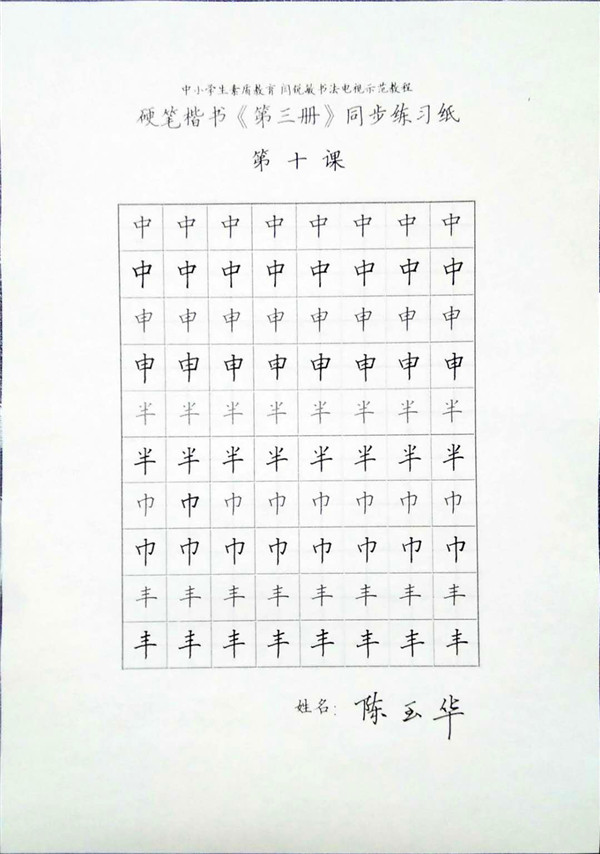 中小学生素质教育 闫锐敏书法电视示范教程
硬笔楷书《第三册》同步练习纸
第十课
中中中中中中中中
中中中中中中中中
申申申申申申申申
申申申申申申申申
半半半半半半半半
半半半半半半半半
巾巾巾巾巾巾巾巾
巾巾巾巾巾巾巾巾
丰丰丰丰丰丰丰丰
丰丰丰丰丰丰丰丰
姓名: 陈玉华